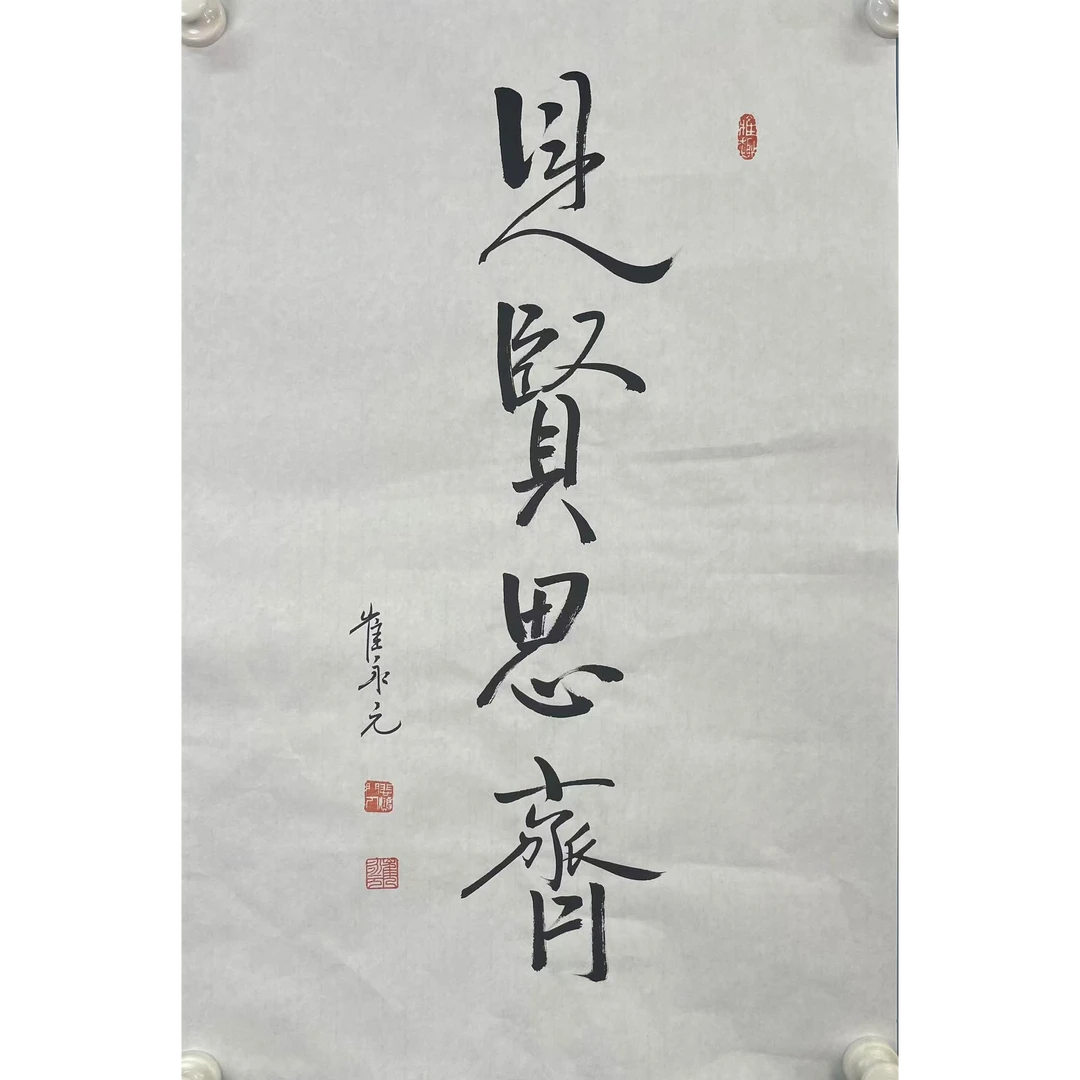 見賢思齊
崔永元